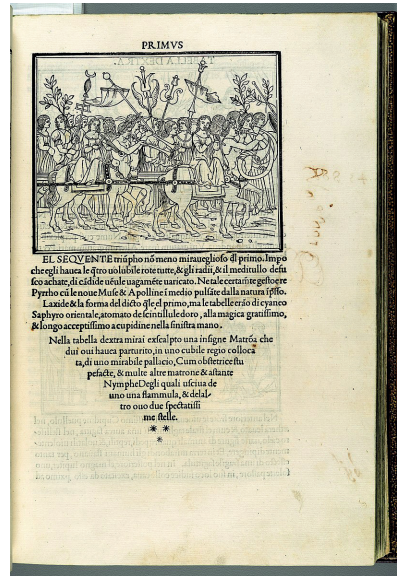 PRIMVS
EL SEQVENTE triũpho nõ meno miraueglioso dl primo. Impo
che egli hauea le q̃tro uolubile rote tutte, & gli radii, & il meditullo defu
sco achate, di cãdide uẽule uagamẽte uaricato. Netale certamẽte gestoe re
Pyrrho cũ le noue Muse & Apolline ĩ medio pulsãte dalla natura ĩpsso.
Laxide & la forma del dicto q̃le el primo, ma le tabelle erão di cyaneo
Saphyro orientale, atomato de scintillule doro, alla magica gratissimo,
& longo acceptissimo a cupidine nella sinistra mano.
Nella tabella dextra mirai exscalpto una insigne Matrõa che
dui oui hauea parturito, in uno cubile regio colloca
ta, di uno mirabile pallacio, Cum obstetrice stu
pefacte, & multe altre matrone & astante
Nymphe Degli quali usciua de
uno una flammula, & delal-
tro ouo due spectatissi
me stelle.